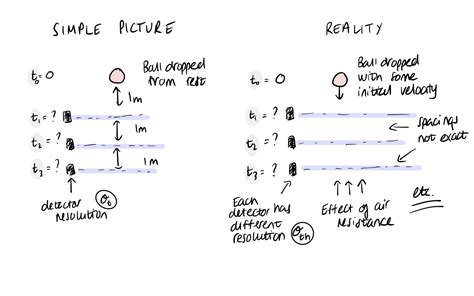 SIMPLE PICTURE
t₀ = 0
Ball dropped
from rest
1m
t₁ = ?
1m
t₂ = ?
1m
t₃ = ?
detector
resolution σt
REALITY
t₀ = 0
Ball dropped
with some
initial velocity
t₁ = ?
spacings
not exact
t₂ = ?
t₃ = ?
Each
detector has
different
resolution σtn
Effect of air
resistance
etc.